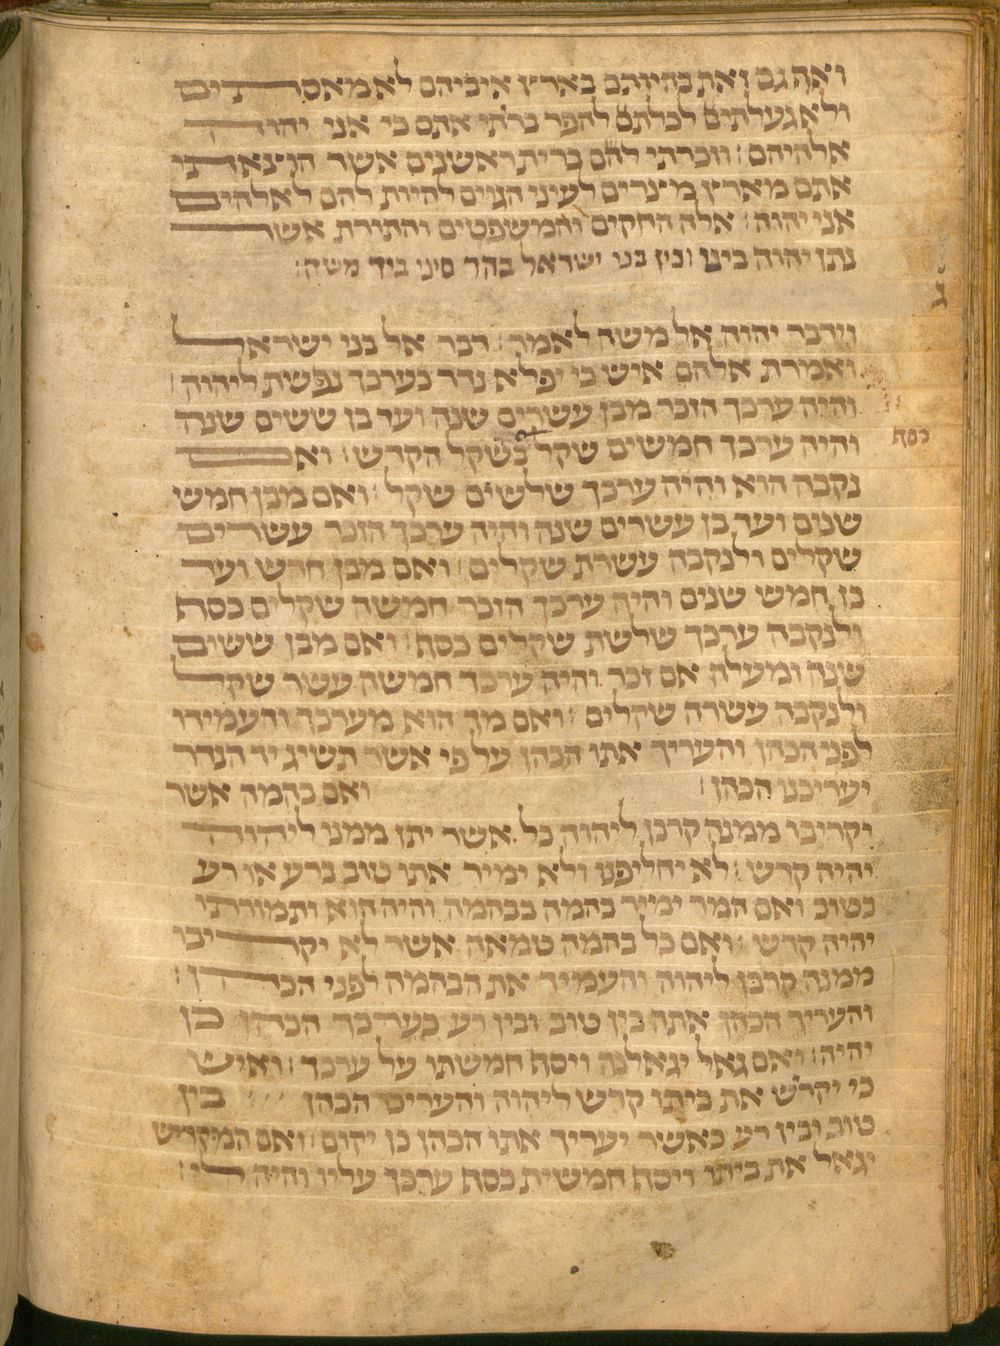 ואף גם זאת בהיותם בארץ איביהם לא מאסתים
ולא געלתים לכלתם להפר בריתי אתם כי אני יהוה
אלהיהם: וזכרתי להם ברית ראשנים אשר הוצאתי
אתם מארץ מצרים לעיני הגוים להיות להם לאלהים
אני יהוה: אלה החקים והמשפטים והתורת אשר
נתן יהוה בינו ובין בני ישראל בהר סיני ביד משה:
וידבר יהוה אל משה לאמר: דבר אל בני ישראל
ואמרת אלהם איש כי יפלא נדר בערכך נפשת ליהוה:
והיה ערכך הזכר מבן עשרים שנה ועד בן ששים שנה
והיה ערכך חמשים שקל בשקל הקדש: ואם
כסף
נקבה הוא והיה ערכך שלשים שקל: ואם מבן חמש
שנים ועד בן עשרים שנה והיה ערכך הזכר עשרים
שקלים ולנקבה עשרת שקלים: ואם מבן חדש ועד
בן חמש שנים והיה ערכך הזכר חמשה שקלים כסף
ולנקבה ערכך שלשת שקלים כסף: ואם מבן ששים
שנה ומעלה אם זכר והיה ערכך חמשה עשר שקל
ולנקבה עשרה שקלים: ואם מך הוא מערכך והעמידו
לפני הכהן והעריך אתו הכהן על פי אשר תשיג יד הנדר
יעריכנו הכהן: ואם בהמה אשר
יקריבו ממנה קרבן ליהוה כל אשר יתן ממנו ליהוה
יהיה קדש: לא יחליפנו ולא ימיר אתו טוב ברע או רע
בטוב ואם המר ימיר בהמה בבהמה והיה הוא ותמורתו
יהיה קדש: ואם כל בהמה טמאה אשר לא יקריבו
ממנה קרבן ליהוה והעמיד את הבהמה לפני הכהן:
והעריך הכהן אתה בין טוב ובין רע כערכך הכהן כן
יהיה: ואם גאל יגאלנה ויסף חמשתו על ערכך: ואיש
כי יקדש את ביתו קדש ליהוה והעריכו הכהן בין
טוב ובין רע כאשר יעריך אתו הכהן כן יקום: ואם המקדיש
יגאל את ביתו ויסף חמשית כסף ערכך עליו והיה לו: